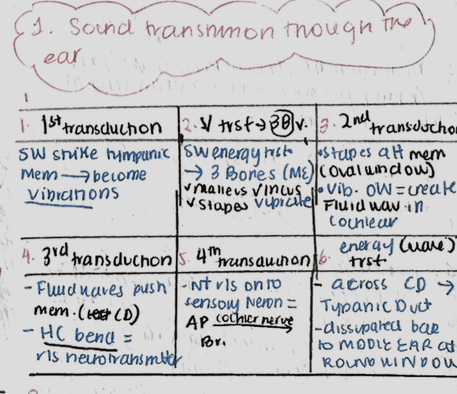 1. Sound transmmon though the
ear
1. 1st transduction
SW strike tympanic
Mem → become
vibrations
2. V trsf → 3B V.
SW energy trsf
→ 3 Bones (ME)
✓ malleus ✓ incus
✓ stapes vibrate
3. 2nd transduction
• stapes att mem
(oval window)
• Vib. OW = create
Fluid wav in
cochlear
4. 3rd transduction
- Fluid waves push
mem. (CD)
- HC bend =
rls neurotransmitter
5. 4th transduction
- NT rls onto
sensory Neron =
AP cochler nerve
Br.
6. energy (wave)
trsf.
- across CD →
Tympanic Duct
- dissipated bac
to MIDDLE EAR at
ROUND WINDOW